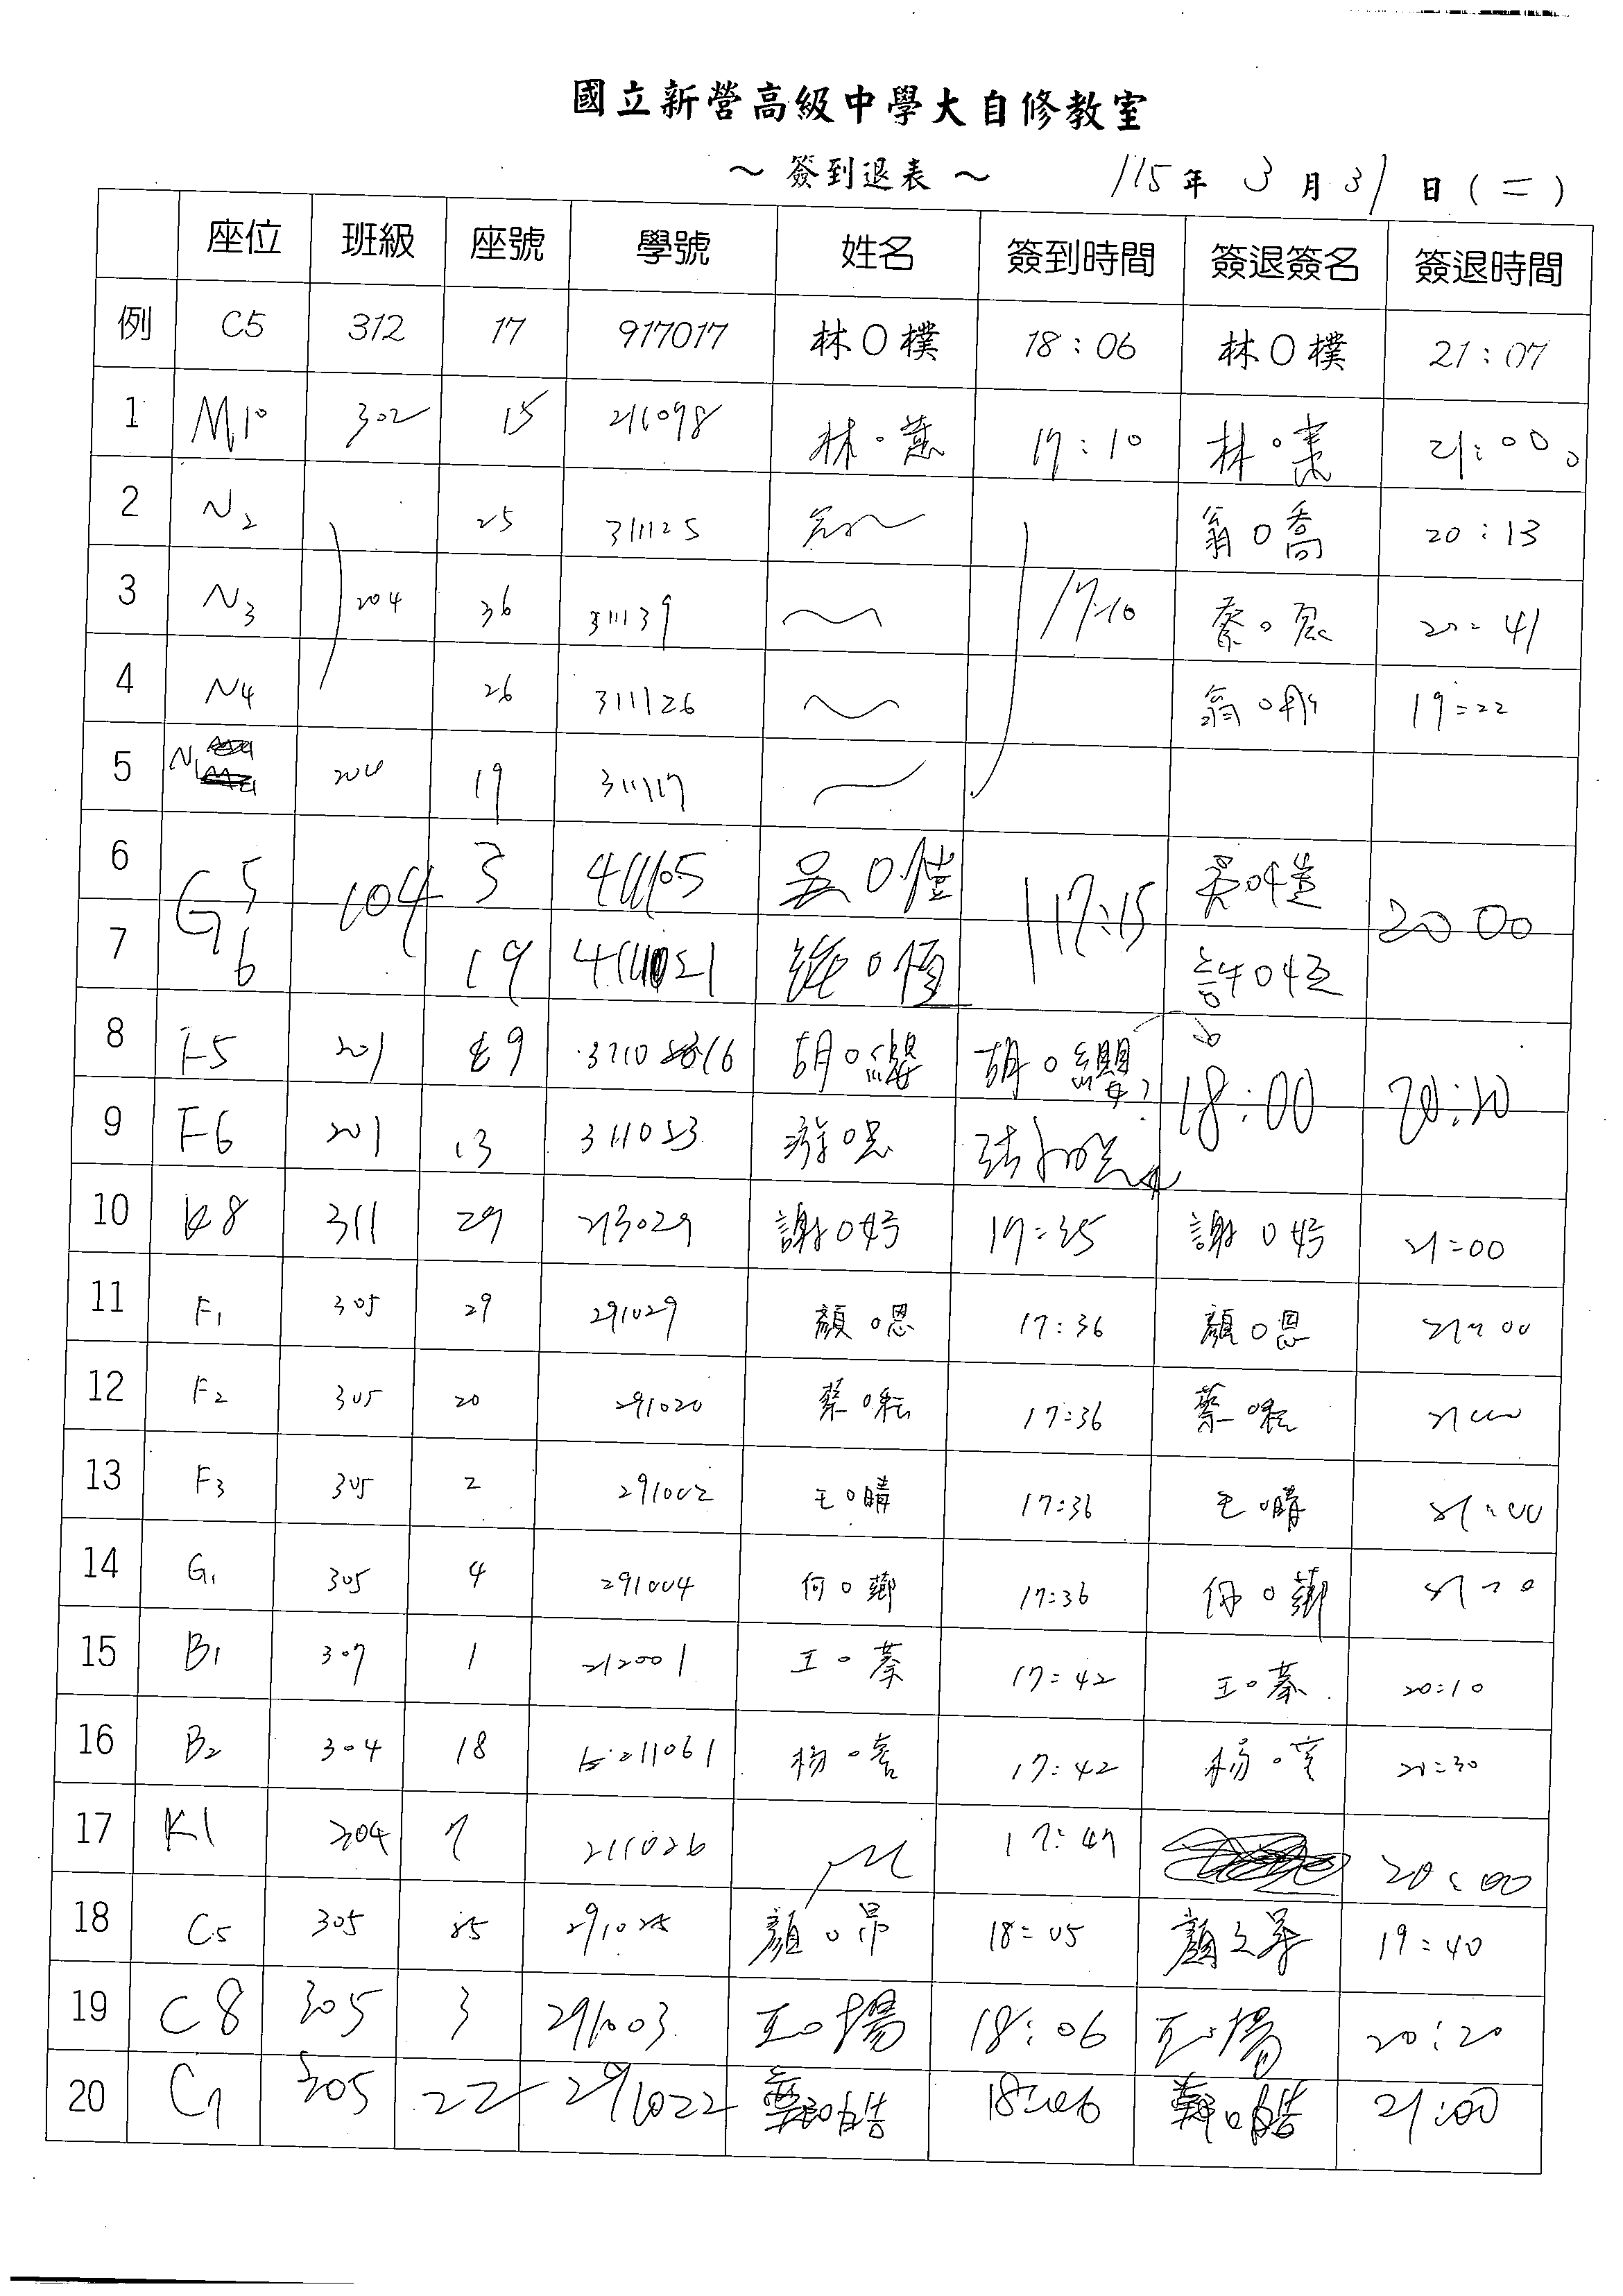 國立新營高級中學大自修教室
~ 簽到退表 ~ 115年 3月31日(二)
座位 班級 座號 學號 姓名 簽到時間 簽退簽名 簽退時間
例 C5 312 17 917017 林O樸 18:06 林O樸 21:07
1 M10 302 15 211098 林 17:10 林 21:00
2 N2 25 311125 翁O喬 20:13
3 N3 204 36 311139 17:10 20:41
4 N4 26 311126 翁O剛 19:22
5 N1 204 19 311117
6 G5 104 3 411105 吳O愷 17:15 吳O愷 20:00
7 6 19 411021 許O恆 許O恆
8 F5 201 9 胡O纓 胡O纓 18:00 20:10
9 F6 201 13 311053
10 K8 311 29 213029 謝O妤 17:35 謝O妤 21:00
11 F1 305 29 291029 顏O恩 17:36 顏O恩 21:00
12 F2 305 20 291020 蔡O耘 17:36 蔡O耘 21:00
13 F3 305 2 291002 王O晴 17:36 王O晴 21:00
14 G1 305 4 291004 何O薌 17:36 何O薌
15 B1 307 1 212001 王O蓁 17:42 王O蓁 20:10
16 B2 304 18 211061 楊 17:42 楊
17 K1 304 7 211026 17:47 20:00
18 C5 305 顏O昂 18:05 顏 19:40
19 C8 305 3 291003 王O暘 18:06 王O暘 20:20
20 C7 305 22 291022 鄭O皓 18:06 鄭O皓 21:00